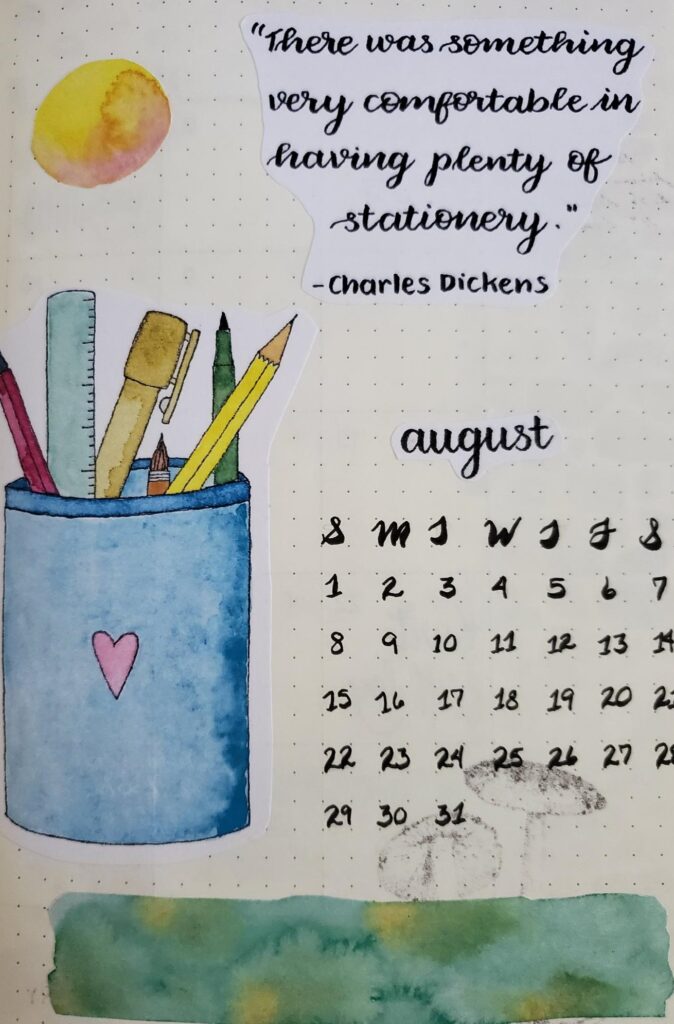 "There was something
very comfortable in
having plenty of
stationery."
-Charles Dickens
august
S M T W T F S
1 2 3 4 5 6 7
8 9 10 11 12 13 14
15 16 17 18 19 20 21
22 23 24 25 26 27 28
29 30 31